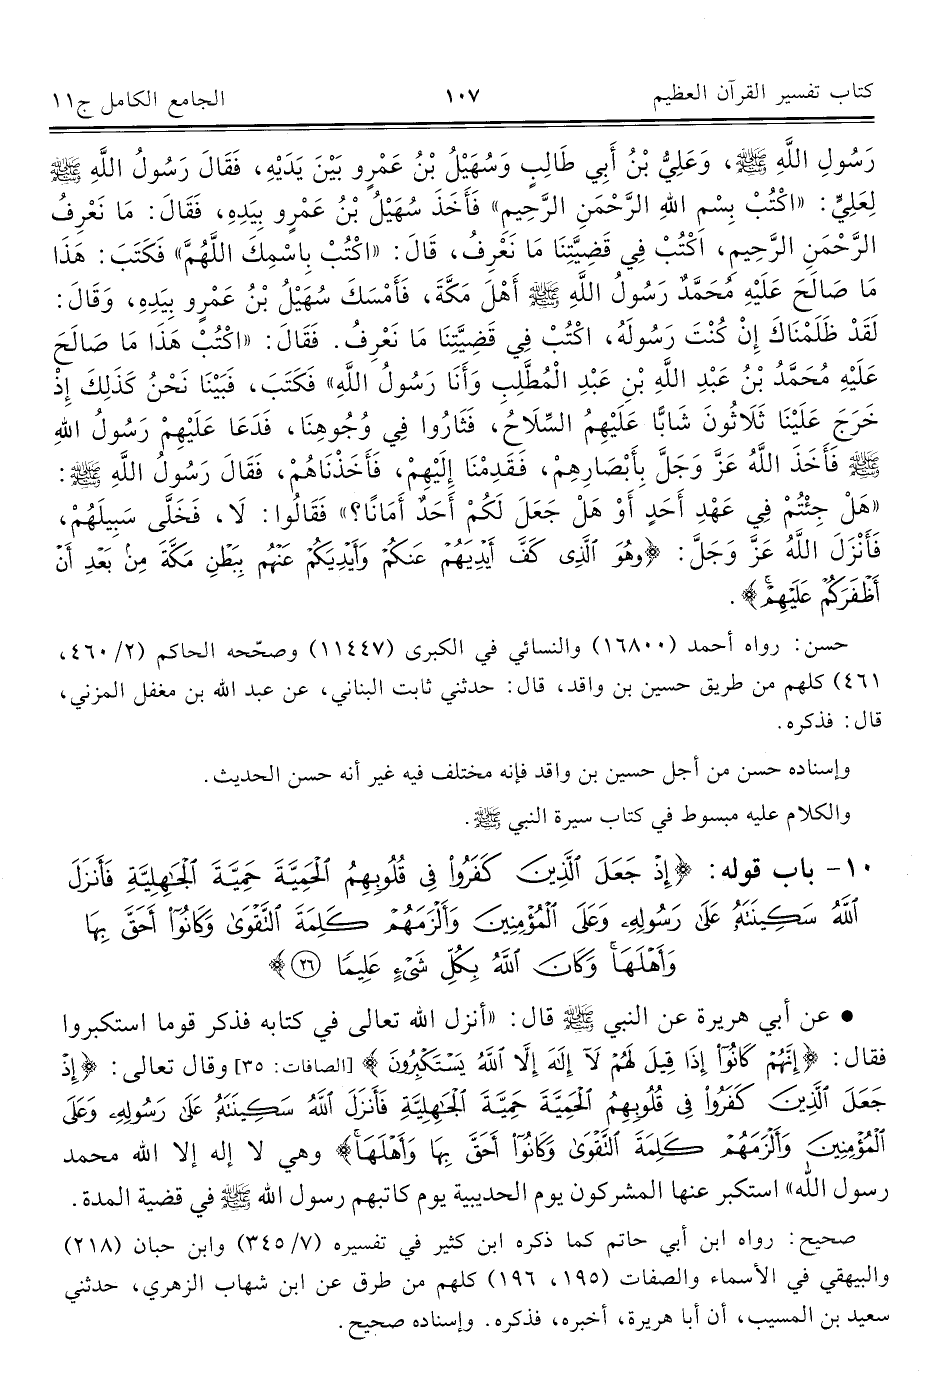 كتاب تفسير القرآن العظيم ١٠٧ الجامع الكامل ج١١
رَسُولِ اللَّهِ ﷺ، وَعَلِيُّ بْنُ أَبِي طَالِبٍ وَسُهَيْلُ بْنُ عَمْرٍو بَيْنَ يَدَيْهِ، فَقَالَ رَسُولُ اللَّهِ ﷺ
لِعَلِيٍّ: «اكْتُبْ بِسْمِ اللهِ الرَّحْمَنِ الرَّحِيمِ» فَأَخَذَ سُهَيْلُ بْنُ عَمْرٍو بِيَدِهِ، فَقَالَ: مَا نَعْرِفُ
الرَّحْمَنِ الرَّحِيمِ، اكْتُبْ فِي قَضِيَّتِنَا مَا نَعْرِفُ، قَالَ: «اكْتُبْ بِاسْمِكَ اللَّهُمَّ» فَكَتَبَ: هَذَا
مَا صَالَحَ عَلَيْهِ مُحَمَّدٌ رَسُولُ اللَّهِ ﷺ أَهْلَ مَكَّةَ، فَأَمْسَكَ سُهَيْلُ بْنُ عَمْرٍو بِيَدِهِ، وَقَالَ:
لَقَدْ ظَلَمْنَاكَ إِنْ كُنْتَ رَسُولَهُ، اكْتُبْ فِي قَضِيَّتِنَا مَا نَعْرِفُ. فَقَالَ: «اكْتُبْ هَذَا مَا صَالَحَ
عَلَيْهِ مُحَمَّدُ بْنُ عَبْدِ اللَّهِ بْنِ عَبْدِ الْمُطَّلِبِ وَأَنَا رَسُولُ اللَّهِ» فَكَتَبَ، فَبَيْنَا نَحْنُ كَذَلِكَ إِذْ
خَرَجَ عَلَيْنَا ثَلَاثُونَ شَابًّا عَلَيْهِمُ السِّلَاحُ، فَثَارُوا فِي وُجُوهِنَا، فَدَعَا عَلَيْهِمْ رَسُولُ اللهِ
ﷺ فَأَخَذَ اللَّهُ عَزَّ وَجَلَّ بِأَبْصَارِهِمْ، فَقَدِمْنَا إِلَيْهِمْ، فَأَخَذْنَاهُمْ، فَقَالَ رَسُولُ اللَّهِ ﷺ:
«هَلْ جِئْتُمْ فِي عَهْدِ أَحَدٍ أَوْ هَلْ جَعَلَ لَكُمْ أَحَدٌ أَمَانًا؟» فَقَالُوا: لَا، فَخَلَّى سَبِيلَهُمْ،
فَأَنْزَلَ اللَّهُ عَزَّ وَجَلَّ: ﴿وَهُوَ ٱلَّذِى كَفَّ أَيْدِيَهُمْ عَنكُمْ وَأَيْدِيَكُمْ عَنْهُم بِبَطْنِ مَكَّةَ مِنۢ بَعْدِ أَنْ
أَظْفَرَكُمْ عَلَيْهِمْ﴾.
حسن: رواه أحمد (١٦٨٠٠) والنسائي في الكبرى (١١٤٤٧) وصحّحه الحاكم (٢/ ٤٦٠،
٤٦١) كلهم من طريق حسين بن واقد، قال: حدثني ثابت البناني، عن عبد الله بن مغفل المزني،
قال: فذكره.
وإسناده حسن من أجل حسين بن واقد فإنه مختلف فيه غير أنه حسن الحديث.
والكلام عليه مبسوط في كتاب سيرة النبي ﷺ.
١٠- باب قوله: ﴿إِذْ جَعَلَ ٱلَّذِينَ كَفَرُوا۟ فِى قُلُوبِهِمُ ٱلْحَمِيَّةَ حَمِيَّةَ ٱلْجَٰهِلِيَّةِ فَأَنزَلَ
ٱللَّهُ سَكِينَتَهُۥ عَلَىٰ رَسُولِهِۦ وَعَلَى ٱلْمُؤْمِنِينَ وَأَلْزَمَهُمْ كَلِمَةَ ٱلتَّقْوَىٰ وَكَانُوٓا۟ أَحَقَّ بِهَا
وَأَهْلَهَا ۚ وَكَانَ ٱللَّهُ بِكُلِّ شَىْءٍ عَلِيمًا ٢٦﴾
● عن أبي هريرة عن النبي ﷺ قال: «أنزل الله تعالى في كتابه فذكر قوما استكبروا
فقال: ﴿إِنَّهُمْ كَانُوٓا۟ إِذَا قِيلَ لَهُمْ لَآ إِلَٰهَ إِلَّا ٱللَّهُ يَسْتَكْبِرُونَ﴾ [الصافات: ٣٥] وقال تعالى: ﴿إِذْ
جَعَلَ ٱلَّذِينَ كَفَرُوا۟ فِى قُلُوبِهِمُ ٱلْحَمِيَّةَ حَمِيَّةَ ٱلْجَٰهِلِيَّةِ فَأَنزَلَ ٱللَّهُ سَكِينَتَهُۥ عَلَىٰ رَسُولِهِۦ وَعَلَى
ٱلْمُؤْمِنِينَ وَأَلْزَمَهُمْ كَلِمَةَ ٱلتَّقْوَىٰ وَكَانُوٓا۟ أَحَقَّ بِهَا وَأَهْلَهَا ۚ﴾ وهي لا إله إلا الله محمد
رسول الله» استكبر عنها المشركون يوم الحديبية يوم كاتبهم رسول الله ﷺ في قضية المدة.
صحيح: رواه ابن أبي حاتم كما ذكره ابن كثير في تفسيره (٧/ ٣٤٥) وابن حبان (٢١٨)
والبيهقي في الأسماء والصفات (١٩٥، ١٩٦) كلهم من طرق عن ابن شهاب الزهري، حدثني
سعيد بن المسيب، أن أبا هريرة، أخبره، فذكره. وإسناده صحيح.